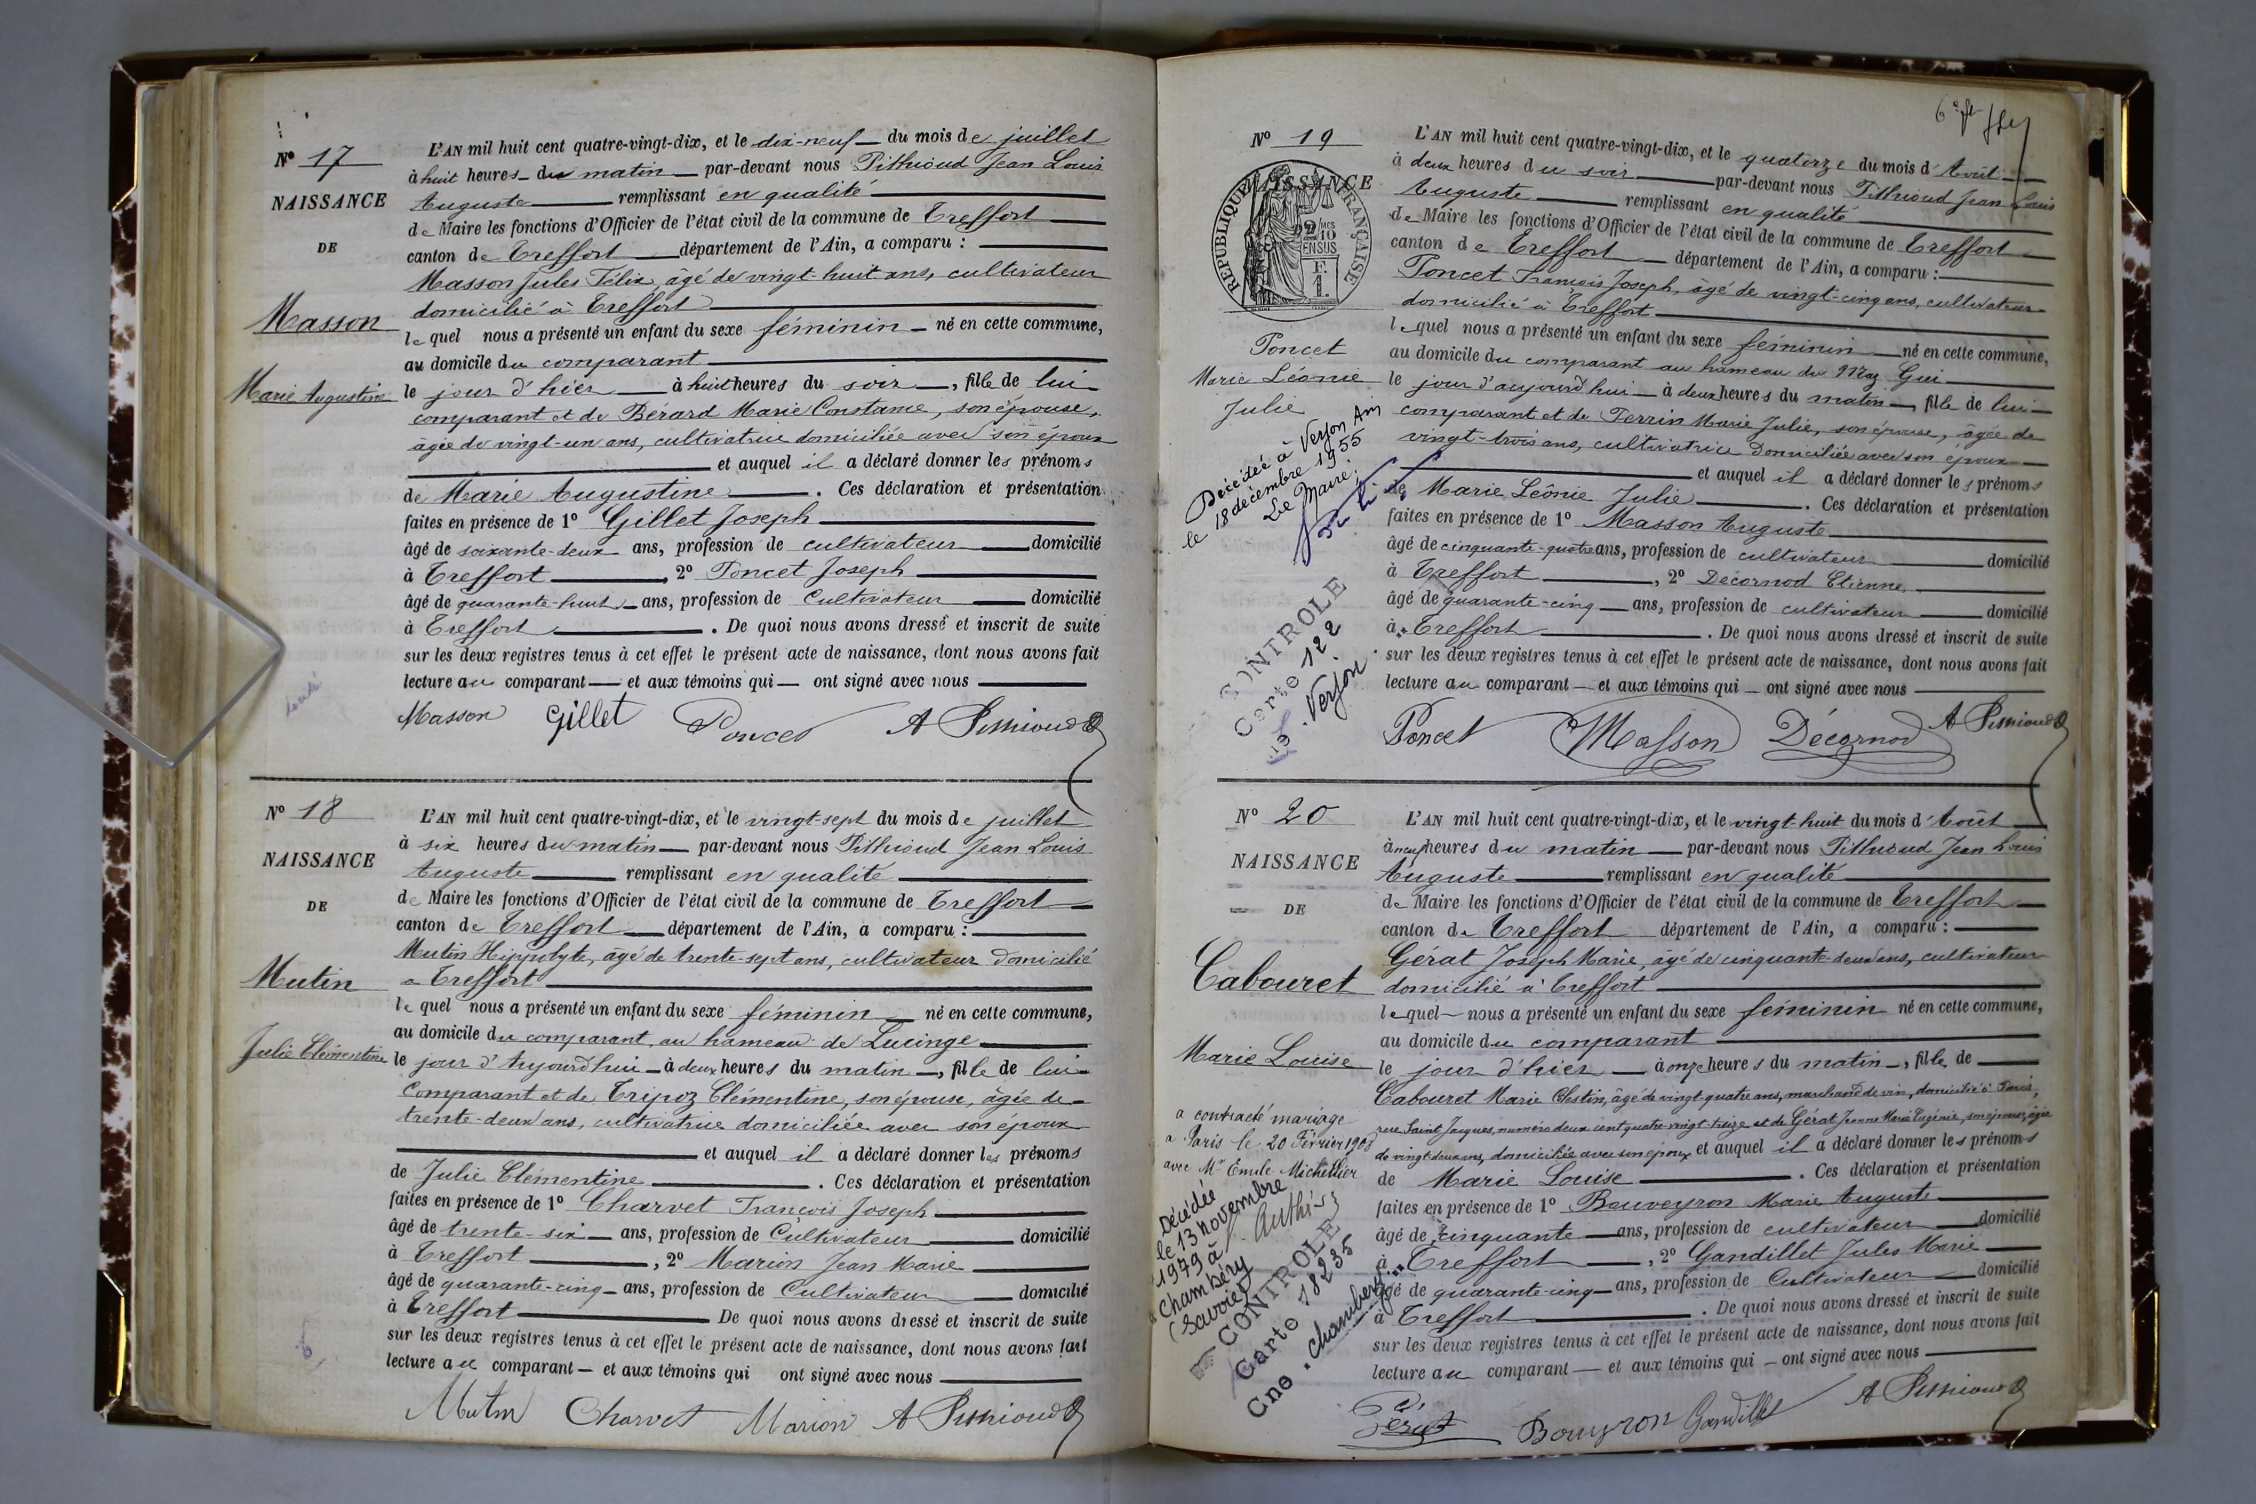 Nº 17
NAISSANCE
DE
Masson
Marie Augustine
L'AN mil huit cent quatre-vingt-dix, et le dix-neuf du mois de juillet
à huit heures du matin par-devant nous Pithioud Jean Louis
Auguste remplissant en qualité
de Maire les fonctions d'Officier de l'état civil de la commune de Treffort
canton de Treffort département de l'Ain, a comparu :
Masson Jules Félix, âgé de vingt-huit ans, cultivateur
domicilié à Treffort
lequel nous a présenté un enfant du sexe féminin né en cette commune,
au domicile du comparant
le jour d'hier à huit heures du soir, fille de lui
comparant et de Bérard Marie Constance, son épouse,
âgée de vingt-un ans, cultivatrice domiciliée avec son époux
et auquel il a déclaré donner les prénoms
de Marie Augustine. Ces déclaration et présentation
faites en présence de 1º Gillet Joseph
âgé de soixante-deux ans, profession de cultivateur domicilié
à Treffort, 2º Poncet Joseph
âgé de quarante-huit ans, profession de Cultivateur domicilié
à Treffort. De quoi nous avons dressé et inscrit de suite
sur les deux registres tenus à cet effet le présent acte de naissance, dont nous avons fait
lecture au comparant et aux témoins qui ont signé avec nous
Masson Gillet Poncet A Pithioud
Nº 18
NAISSANCE
DE
Mutin
Julie Clémentine
L'AN mil huit cent quatre-vingt-dix, et le vingt-sept du mois de juillet
à six heures du matin par-devant nous Pithioud Jean Louis
Auguste remplissant en qualité
de Maire les fonctions d'Officier de l'état civil de la commune de Treffort
canton de Treffort département de l'Ain, a comparu :
Mutin Hippolyte, âgé de trente-sept ans, cultivateur domicilié
à Treffort
lequel nous a présenté un enfant du sexe féminin né en cette commune,
au domicile du comparant au hameau de Lucinge
le jour d'Aujourd'hui à deux heures du matin, fille de lui
Comparant et de Tripoz Clémentine, son épouse, âgée de
trente-deux ans, cultivatrice domiciliée avec son époux
et auquel il a déclaré donner les prénoms
de Julie Clémentine. Ces déclaration et présentation
faites en présence de 1º Charvet François Joseph
âgé de trente-six ans, profession de Cultivateur domicilié
à Treffort, 2º Marion Jean Marie
âgé de quarante-cinq ans, profession de Cultivateur domicilié
à Treffort De quoi nous avons dressé et inscrit de suite
sur les deux registres tenus à cet effet le présent acte de naissance, dont nous avons fait
lecture au comparant et aux témoins qui ont signé avec nous
Mutin Charvet Marion A Pithioud
Nº 19
NAISSANCE
RÉPUBLIQUE FRANÇAISE
2/10 EN SUS
F. 1.
Poncet
Marie Léonie
Julie
Décédée à Verjon Ain
le 18 décembre 1955
Le Maire:
CONTROLE
Carte 122
Verjon
L'AN mil huit cent quatre-vingt-dix, et le quatorze du mois d'Août
à deux heures du soir par-devant nous Pithioud Jean Louis
Auguste remplissant en qualité
de Maire les fonctions d'Officier de l'état civil de la commune de Treffort
canton de Treffort département de l'Ain, a comparu :
Poncet François Joseph, âgé de vingt-cinq ans, cultivateur
domicilié à Treffort
lequel nous a présenté un enfant du sexe féminin né en cette commune,
au domicile du comparant au hameau du Maz Gui
le jour d'aujourd'hui à deux heures du matin, fille de lui
comparant et de Perrin Marie Julie, son épouse, âgée de
vingt-trois ans, cultivatrice Domiciliée avec son époux
et auquel il a déclaré donner les prénoms
de Marie Léonie Julie. Ces déclaration et présentation
faites en présence de 1º Masson Auguste
âgé de cinquante-quatre ans, profession de cultivateur domicilié
à Treffort, 2º Décornod Etienne
âgé de quarante-cinq ans, profession de cultivateur domicilié
à Treffort. De quoi nous avons dressé et inscrit de suite
sur les deux registres tenus à cet effet le présent acte de naissance, dont nous avons fait
lecture au comparant et aux témoins qui ont signé avec nous
Poncet Masson Décornod A Pithioud
Nº 20
NAISSANCE
DE
Cabouret
Marie Louise
a contracté mariage
a Paris le 20 Février 1908
avec Mr Emile Michellier
Décédée
le 13 novembre
1979 à
Chambéry
(Savoie)
CONTROLE
Carte 18235
Cne. Chambéry
L'AN mil huit cent quatre-vingt-dix, et le vingt-huit du mois d'Août
à neuf heures du matin par-devant nous Pithioud Jean Louis
Auguste remplissant en qualité
de Maire les fonctions d'Officier de l'état civil de la commune de Treffort
canton de Treffort département de l'Ain, a comparu :
Gérat Joseph Marie, âgé de cinquante-deux ans, cultivateur
domicilié à Treffort
lequel nous a présenté un enfant du sexe féminin né en cette commune,
au domicile du comparant
le jour d'hier à onze heures du matin, fille de
Cabouret Marie Célestin, âgé de vingt quatre ans, marchand de vin, domicilié à Paris,
rue Saint Jacques, numéro deux cent quatre-vingt-treize et de Gérat Jeanne Marie Eugénie, son épouse, âgée
de vingt-deux ans, domiciliée avec son époux et auquel il a déclaré donner les prénoms
de Marie Louise. Ces déclaration et présentation
faites en présence de 1º Bouveyron Marie Auguste
âgé de cinquante ans, profession de cultivateur domicilié
à Treffort, 2º Gandillet Jules Marie
âgé de quarante-cinq ans, profession de Cultivateur domicilié
à Treffort. De quoi nous avons dressé et inscrit de suite
sur les deux registres tenus à cet effet le présent acte de naissance, dont nous avons fait
lecture au comparant et aux témoins qui ont signé avec nous
Gérat Bouvyron Gandillet A Pithioud